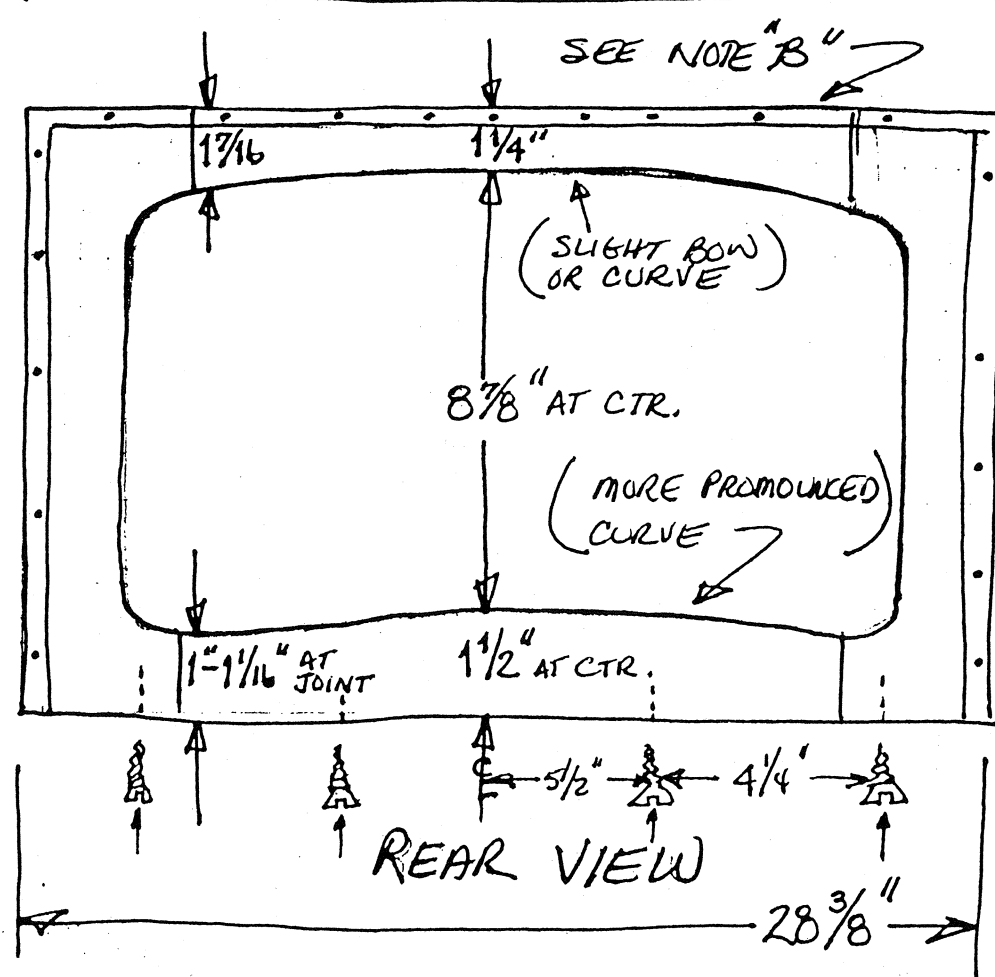 SEE NOTE "B"
1 7/16
1 1/4"
(SLIGHT BOW
OR CURVE)
8 7/8" AT CTR.
(MORE PROMOUNCED
CURVE)
1"-1 1/16" AT
JOINT
1 1/2" AT CTR.
5 1/2"
4 1/4"
REAR VIEW
28 3/8"